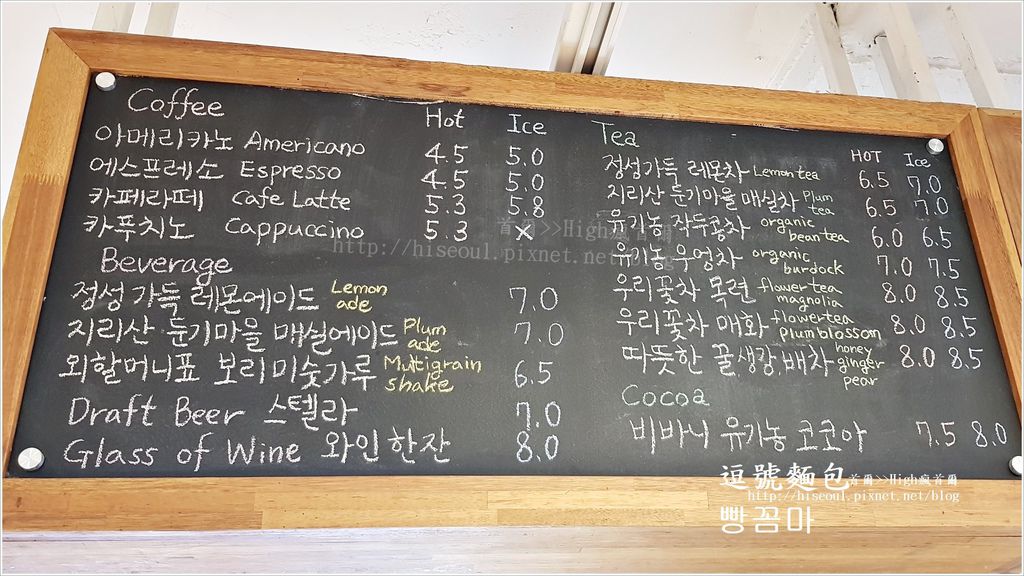 Coffee Hot Ice
아메리카노 Americano 4.5 5.0
에스프레소 Espresso 4.5 5.0
카페라떼 Cafe Latte 5.3 5.8
카푸치노 Cappuccino 5.3 x
Beverage
정성가득 레몬에이드 Lemon ade 7.0
지리산 둔기마을 매실에이드 Plum ade 7.0
외할머니표 보리미숫가루 Multigrain shake 6.5
Draft Beer 스텔라 7.0
Glass of Wine 와인한잔 8.0
Tea HOT Ice
정성가득 레몬차 Lemon tea 6.5 7.0
지리산 둔기마을 매실차 Plum tea 6.5 7.0
유기농 작두콩차 organic bean tea 6.0 6.5
유기농 우엉차 organic burdock 7.0 7.5
우리꽃차 목련 flower tea magnolia 8.0 8.5
우리꽃차 매화 flower tea plum blossom 8.0 8.5
따뜻한 꿀.생강.배차 honey ginger pear 8.0 8.5
Cocoa
비바니 유기농 코코아 7.5 8.0
首爾>>High瘋首爾
http://hiseoul.pixnet.net/blog
逗號麵包 首爾>>High瘋首爾
http://hiseoul.pixnet.net/blog
빵꼼마